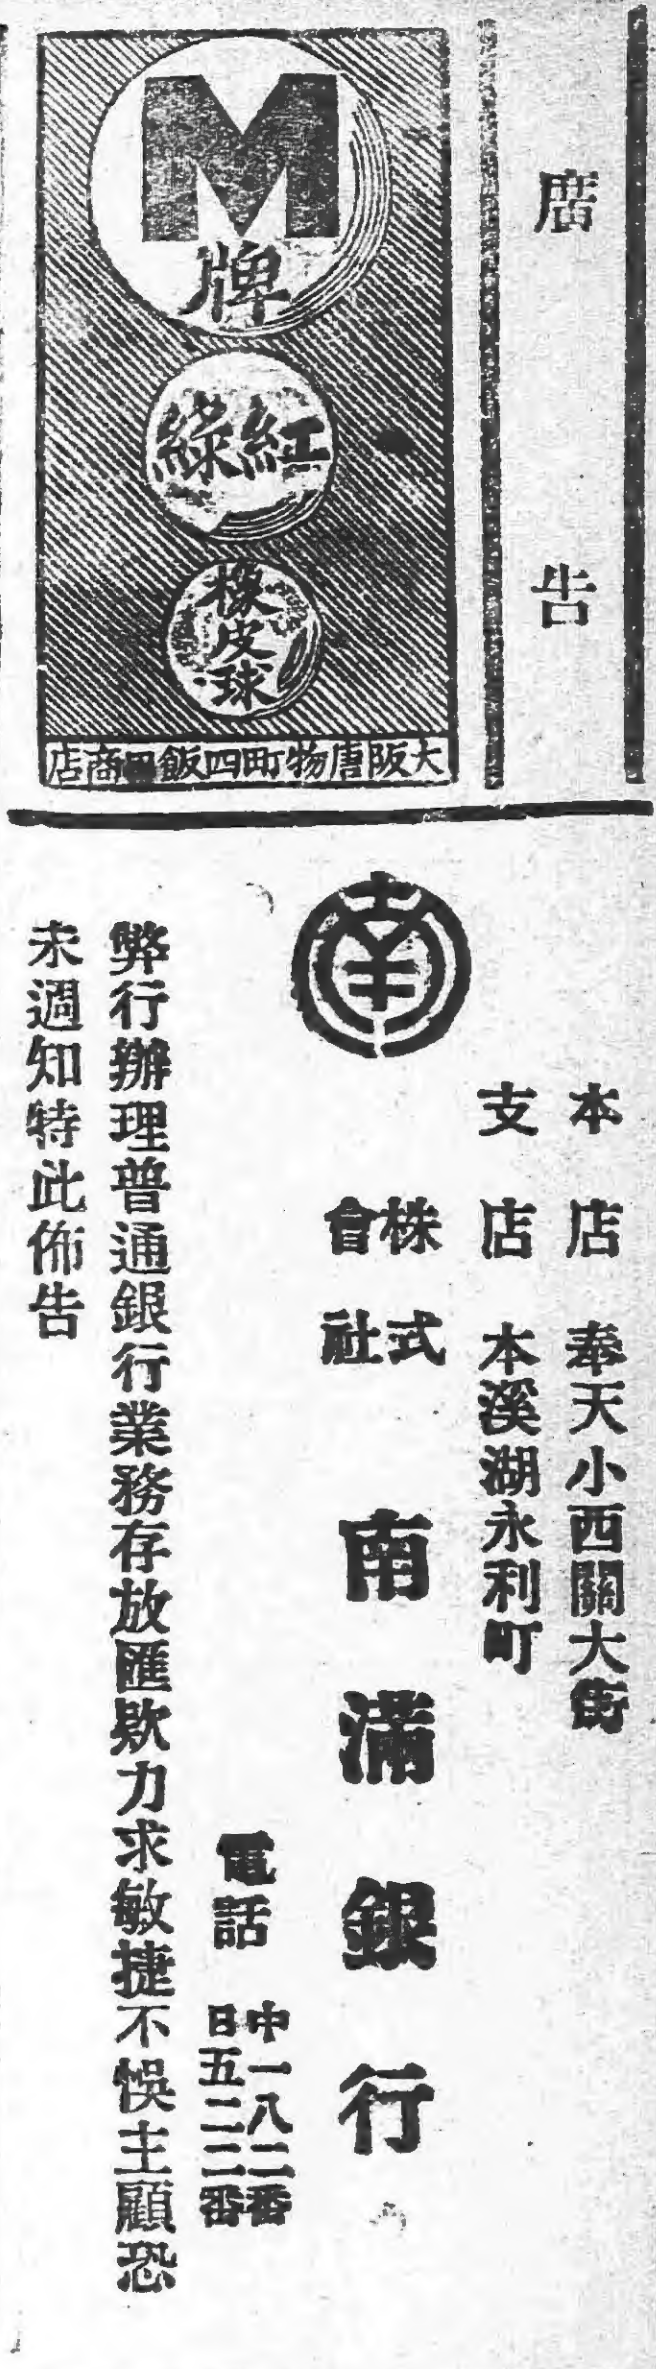 廣告
M
牌
紅綠
橡皮球
大阪唐物町四飯田商店
本店 奉天小西關大街
支店 本溪湖永利町
株式會社 南滿銀行
電話 中一八二番
日五二二番
弊行辦理普通銀行業務存放匯欵力求敏捷不悞主顧恐
未週知特此佈告